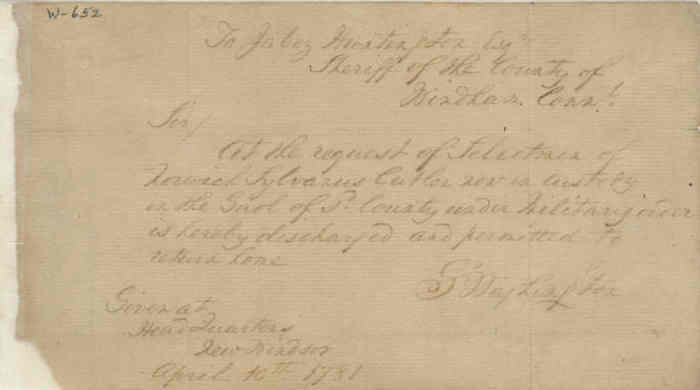 W-652
To Jabez Huntington Esqr
Sheriff of the County of
Windham Connt.
Sir/
At the request of Selectmen of
Norwich Sylvanus Cutler now in custody
in the Gaol of sd. County under Military order
is hereby discharged and permitted to
return home
Go Washington
Given at
Head Quarters
New Windsor
April 10th 1781